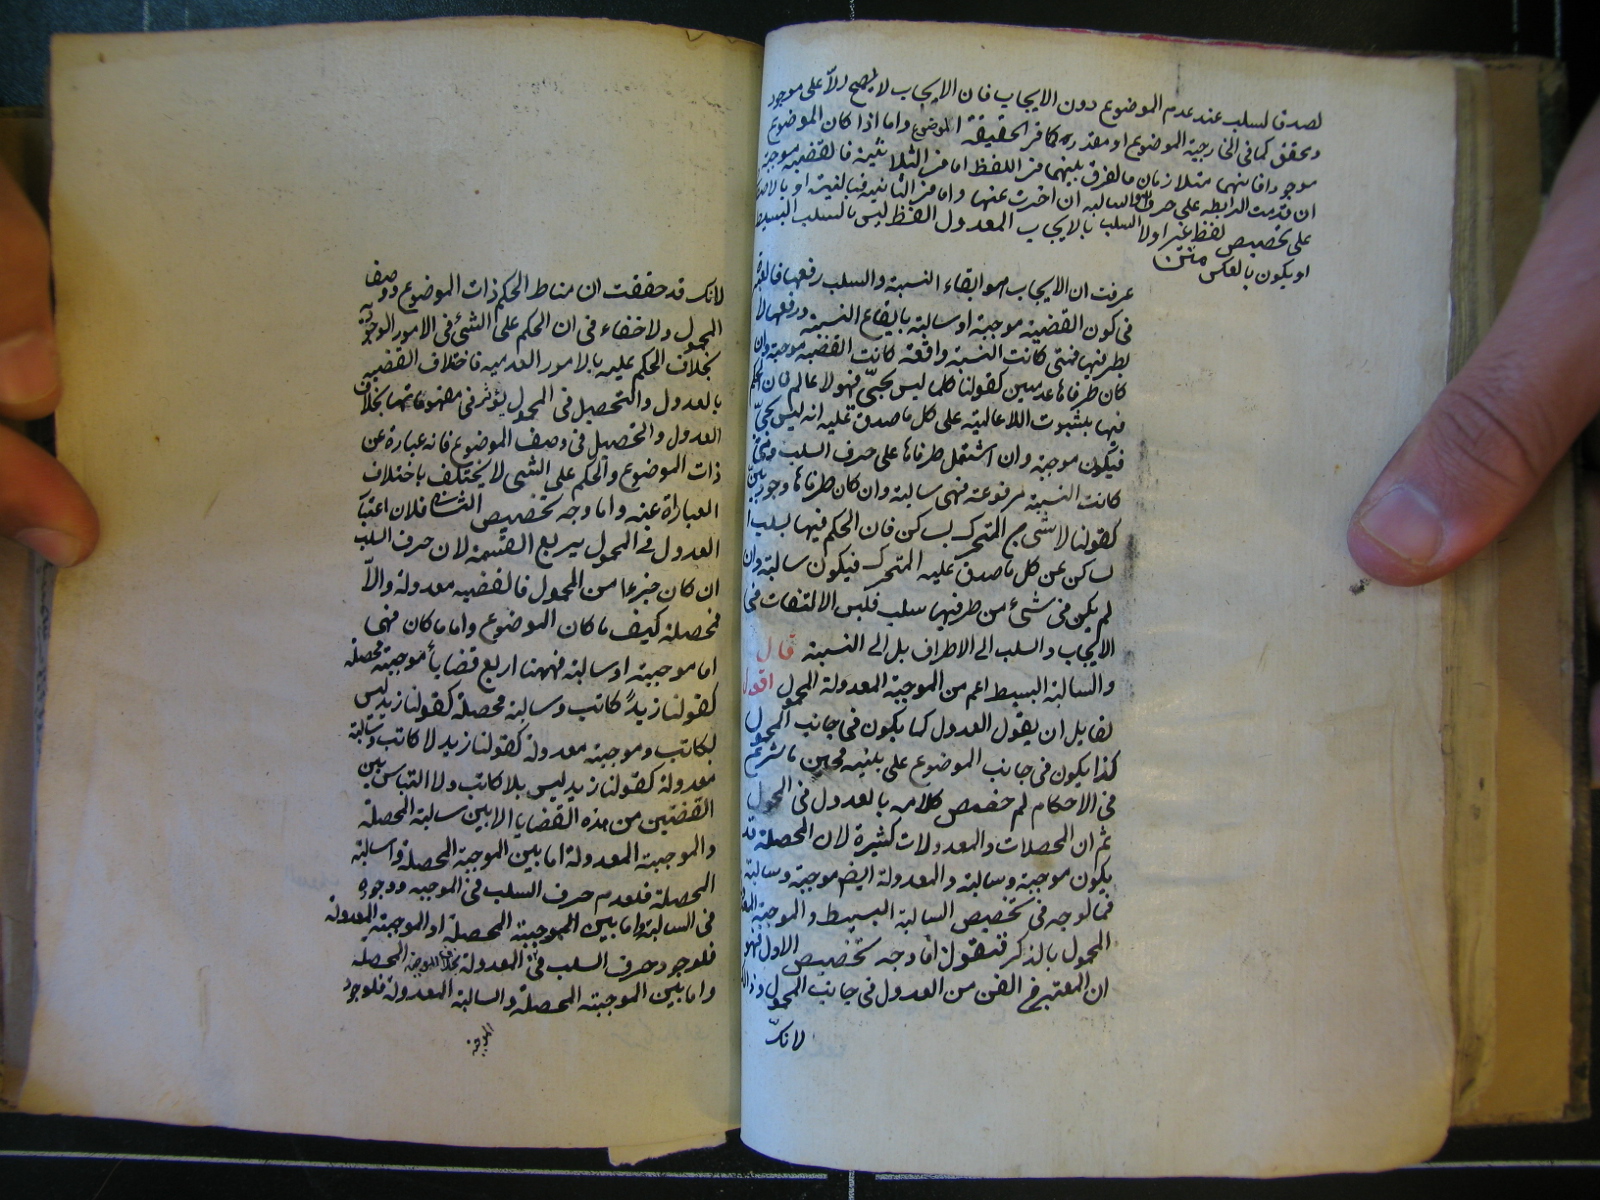 لصدق السلب عند عدم الموضوع دون الايجاب فان الايجاب لا يصح الا على موجود
محقق كما في الخارجية الموضوع او مقدر كما في الحقيقة الموضوع واما اذا كان الموضوع
موجودا فانهما متلازمان والفرق بينهما في اللفظ اما في الثلاثية فالقضية موجبة
ان قدمت الرابطة على حرف السلب وسالبة ان اخرت عنها واما في الثنائية فبالنية او بالاصطلاح
على تخصيص لفظ غير او لا بالايجاب المعدول ولفظ ليس بالسلب البسيط
او يكون بالعكس متن
عرفت ان الايجاب هو ايقاع النسبة والسلب رفعها فالعبرة
في كون القضية موجبة او سالبة بايقاع النسبة ورفعها لا
بطرفيها فمتى كانت النسبة واقعة كانت القضية موجبة وان
كان طرفاها عدميين كقولنا كلما ليس بحي فهو لا عالم فان الحكم
فيها بثبوت اللاعالمية على كل ما صدق عليه انه ليس بحي
فيكون موجبة وان اشتمل طرفاها على حرف السلب ومتى
كانت النسبة مرفوعة فهي سالبة وان كان طرفاها وجوديين
كقولنا لا شيء من المتحرك بساكن فان الحكم فيها بسلب
ساكن عن كل ما صدق عليه المتحرك فيكون سالبة وان
لم يكن في شيء من طرفيها سلب فليس الالتفات في
الايجاب والسلب الى الاطراف بل الى النسبة قال
والسالبة البسيط اعم من الموجبة المعدولة المحمول اقول
لقايل ان يقول العدول كما يكون في جانب المحمول
كذا يكون في جانب الموضوع على ما بينه فحين ما شرع
في الاحكام لم خصص كلامه بالعدول في المحمول
ثم ان المحصلات والمعدولات كثيرة لان المحصلة قد
يكون موجبة وسالبة والمعدولة ايضا موجبة وسالبة
فما الوجه في تخصيص السالبة البسيط والموجبة المعدولة
المحمول بالذكر فنقول اما وجه تخصيص الاول فهو
ان المعتبر في الفن من العدول في جانب المحمول وذلك
لانك
لانك قد حققت ان مناط الحكم ذات الموضوع ووصف
المحمول ولا خفاء في ان الحكم على الشيء في الامور الوجودية
بخلاف الحكم عليه بالامور العدمية فاختلاف القضية
بالعدول والتحصيل في المحمول يؤثر في مفهوماتها بخلاف
العدول والتحصيل في وصف الموضوع فانه عبارة عن
ذات الموضوع والحكم على الشيء لا يختلف باختلاف
العبارات عنه واما وجه تخصيص الثاني فلان اعتبار
العدول في المحمول يربع القسمة لان حرف السلب
ان كان جزءا من المحمول فالقضية معدولة والا
فمحصلة كيف ما كان الموضوع واما ما كان فهي
اما موجبة او سالبة فههنا اربع قضايا موجبة محصلة
كقولنا زيد كاتب وسالبة محصلة كقولنا زيد ليس
بكاتب وموجبة معدولة كقولنا زيد لا كاتب وسالبة
معدولة كقولنا زيد ليس بلا كاتب ولا التباس بين
القضيتين من هذه القضايا الا بين سالبة المحصلة
والموجبة المعدولة اما بين الموجبة المحصلة والسالبة
المحصلة فلعدم حرف السلب في الموجبة ووجوده
في السالبة واما بين الموجبة المحصلة او الموجبة المعدولة
فلوجود حرف السلب في المعدولة بخلاف الموجبة المحصلة
واما بين الموجبة المحصلة والسالبة المعدولة فلوجود